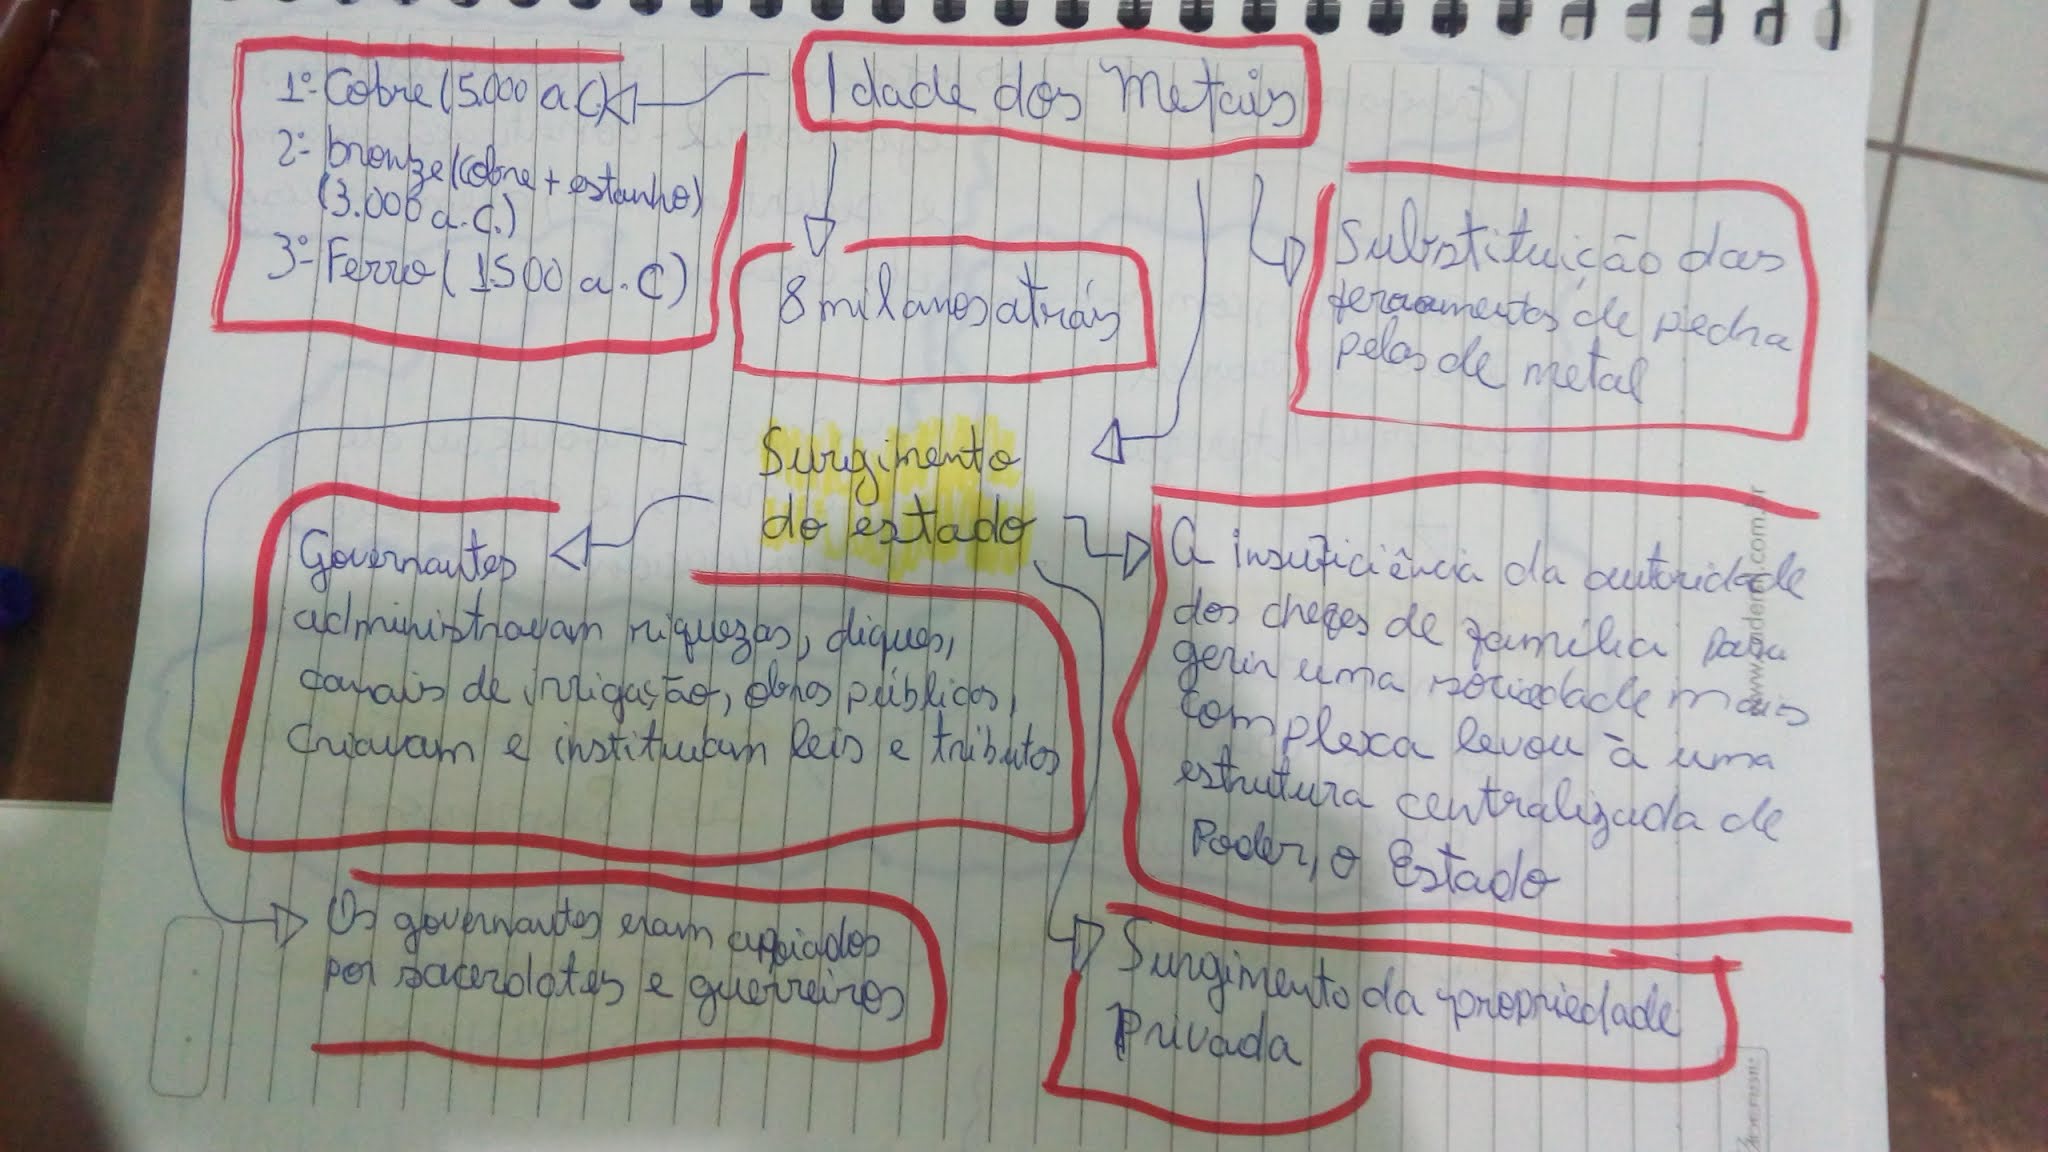 Idade dos Metais
1º- Cobre (5.000 a.C)
2º- bronze (cobre + estanho)
(3.000 a.C.)
3º- Ferro (1.500 a.C)
8 mil anos atrás
Substituição das
ferramentas de pedra
pelas de metal
Surgimento
do estado
Governantes
administravam riquezas, diques,
canais de irrigação, obras públicas,
Criavam e instituiam leis e tributos
A insuficiência da autoridade
dos chefes de família para
gerir uma sociedade mais
complexa levou à uma
estrutura centralizada de
Poder, o Estado
Os governantes eram apoiados
por sacerdotes e guerreiros
Surgimento da propriedade
Privada